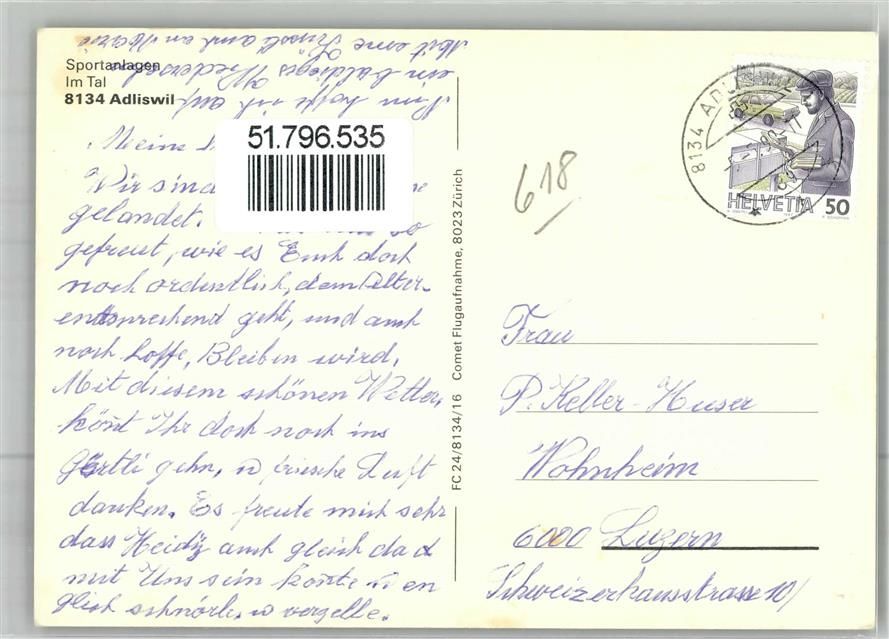 Sportanlagen
Im Tal
8134 Adliswil
51.796.535
Meine
Wir sind
gelandet. so
gefreut, wie es Euch doch
noch ordentlich, dem Alter
entsprechend geht, und auch
noch hoffe, Bleiben wird.
Mit diesem schönen Wetter,
könt Ihr doch noch ins
Gärtli gehn, u frische Luft
danken. Es freute mich sehr
dass Heidy auch gleich da
mit Uns sein konte
schnörle, u verzelle.
Nun hoffe ich auf
ein baldiges Wiederseh
Mit eme Grüssli auch an
FC 24/8134/16 Comet Flugaufnahme, 8023 Zürich
618
8134 ADLISWIL
HELVETIA 50
Frau
P. Keller-Huser
Wohnheim
6000 Luzern
Schweizerhausstrasse 10/